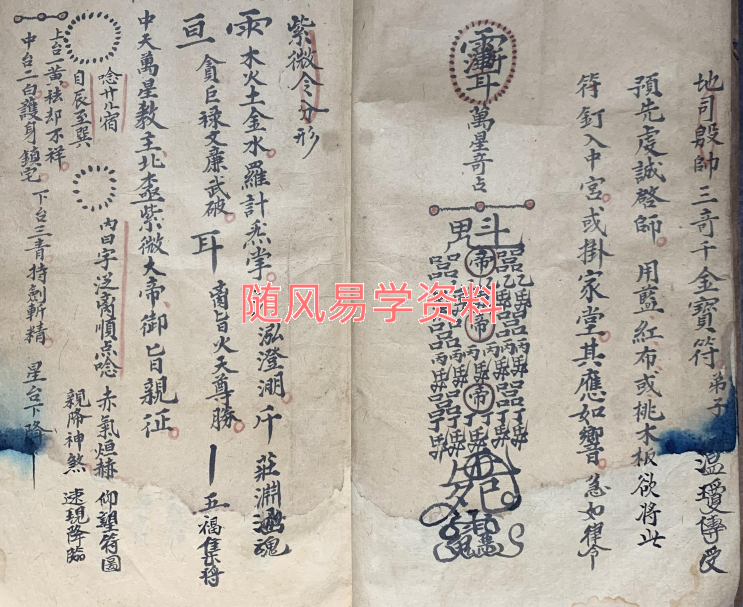 地司殷帥三奇千金寶符 弟子 溫瓊傳受
預先虔誠啓師。用藍紅布或桃木板欲將此
符釘入中宮。或掛家堂。其應如響。急如律令
萬星奇占
斗
帝
帝
帝
紫微令分形
木火土金水羅計炁孛。泓澄淵 莊淵 魂
貪巨祿文廉武破。耳 旨火天尊勝。五福集將
中天萬星教主北極紫微大帝御旨親征
念廿八宿 內曰字泛 順点唸 赤氣烜赫 仰望符圖
自辰至巽 親降神煞 速現降臨
上台一黃。祛却不祥。
中台二白護身鎮宅。下台三青持劍斬精 星台下降
随风易学资料